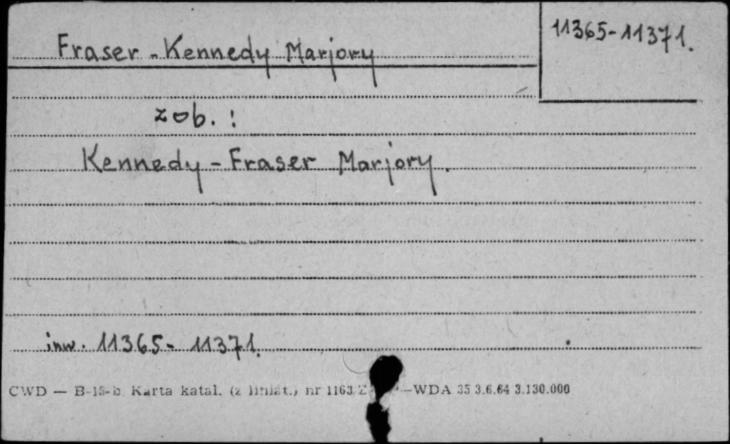 Fraser-Kennedy Marjory
11365-11371.
zob. :
Kennedy-Fraser Marjory.
inw. 11365- 11371.
CWD — B-15-b. Karta katal. (z liniat.) nr 1163/Z —WDA 35 3.6.64 3.130.000